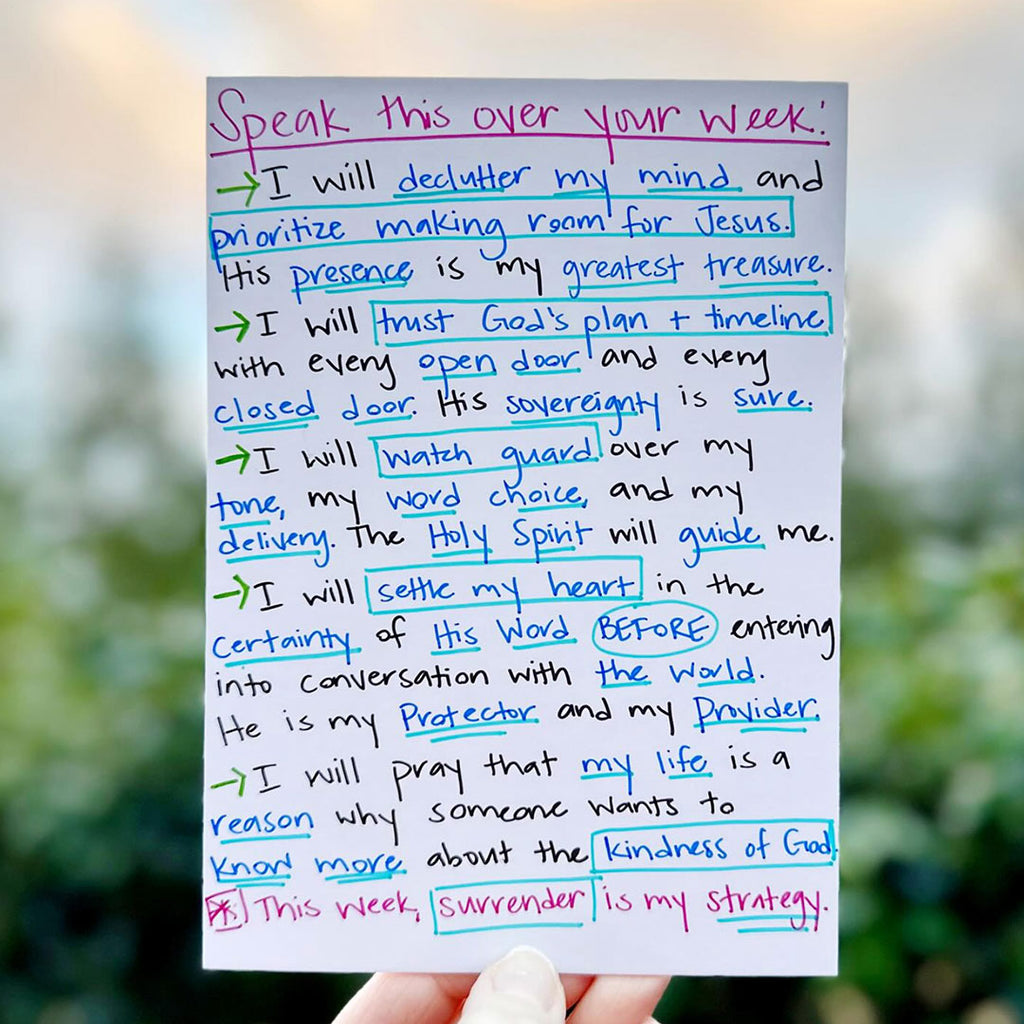 Speak this over your week:
→I will declutter my mind and
prioritize making room for Jesus.
His presence is my greatest treasure.
→I will trust God's plan + timeline
with every open door and every
closed door. His sovereignty is sure.
→I will watch guard over my
tone, my word choice, and my
delivery. The Holy Spirit will guide me.
→I will settle my heart in the
certainty of His Word BEFORE entering
into conversation with the world.
He is my Protector and my Provider.
→I will pray that my life is a
reason why someone wants to
know more about the kindness of God.
* This week, surrender is my strategy.